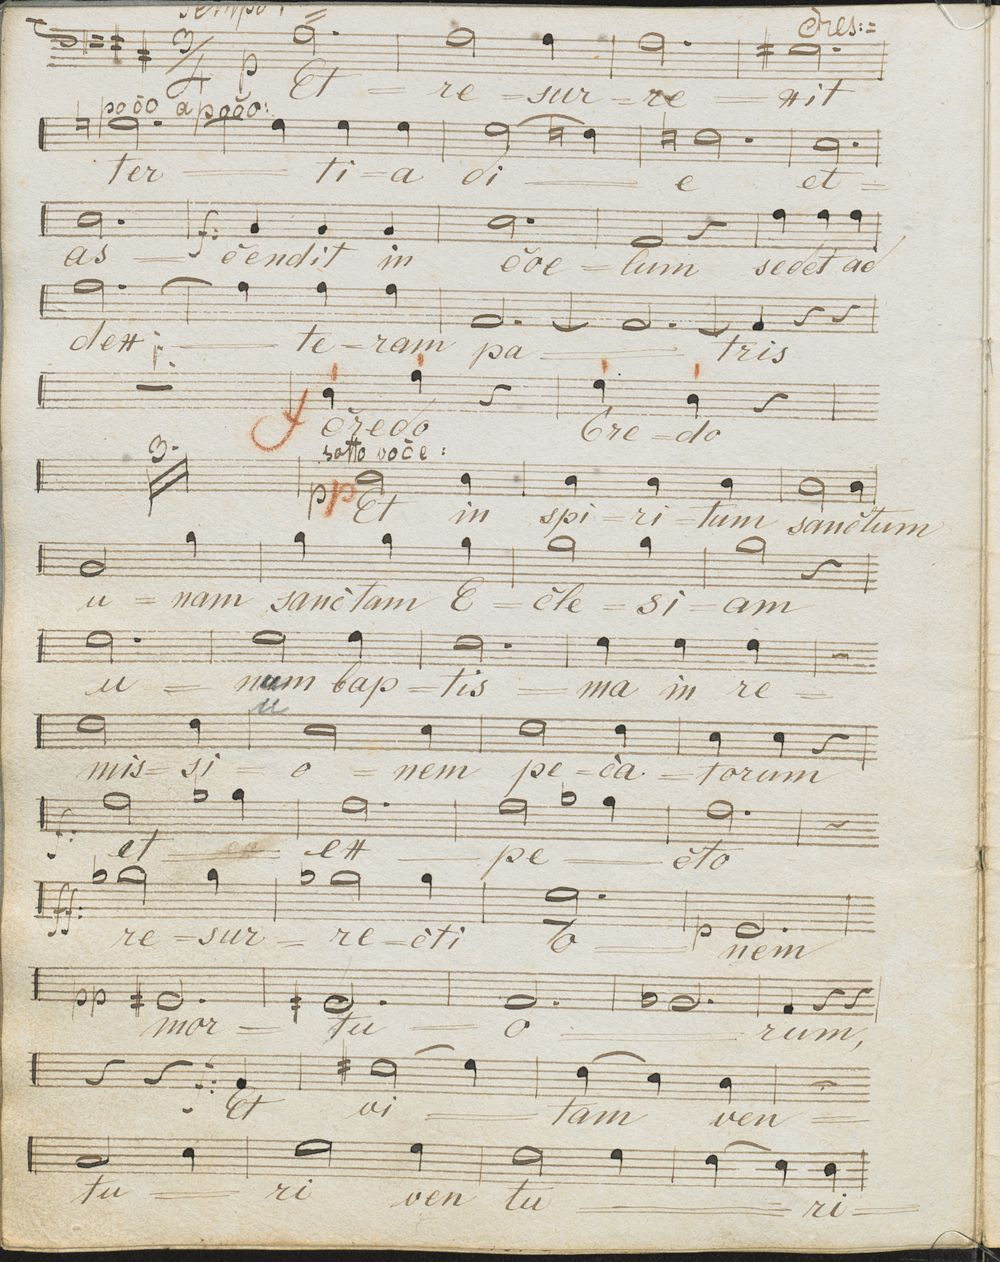 Tempo I
cres:
3/4 p Et re - sur - re - xit
poco a poco:
ter ti - a di e et
f:
as cendit in coe - lum sedet ad
dex te - ram pa tris
f credo Cre - do
3. sotto voce:
pp Et in spi - ri - tum sanctum
u - nam sanctam E - cle - si - am
u - num bap - tis - ma in re -
u
mis - si - o - nem pe - ca - torum
f: et ex pe cto
ff: re - sur - re - cti o p nem
pp mor - tu o rum,
f: Et vi tam ven
tu ri ven tu ri